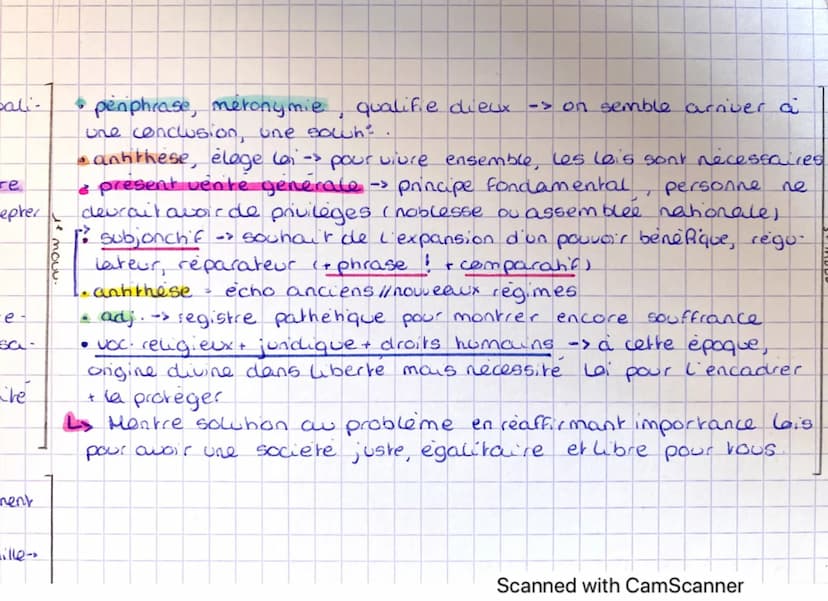 pali-
• périphrase, métonymie, qualifie dieux -> on semble arriver à
une conclusion, une soluth°.
• antithèse, éloge loi -> pour vivre ensemble, les lois sont nécessaires
re
• présent vérité générale -> principe fondamental, personne ne
epter
devrait avoir de privilèges (noblesse ou assemblée nationale)
• subjonctif -> souhait de l'expansion d'un pouvoir bénéfique, régu-
lateur, réparateur (+ phrase ! + comparatif)
1er mouv.
• antithèse = écho anciens // nouveaux régimes
e-
• adj. -> registre pathétique pour montrer encore souffrance
sa-
• voc. religieux + juridique + droits humains -> à cette époque,
origine divine dans liberté mais nécessité loi pour l'encadrer
ité
+ la protéger
↳ Montre solution au problème en réaffirmant importance lois
pour avoir une société juste, égalitaire et libre pour tous.
ment
ille->
Scanned with CamScanner